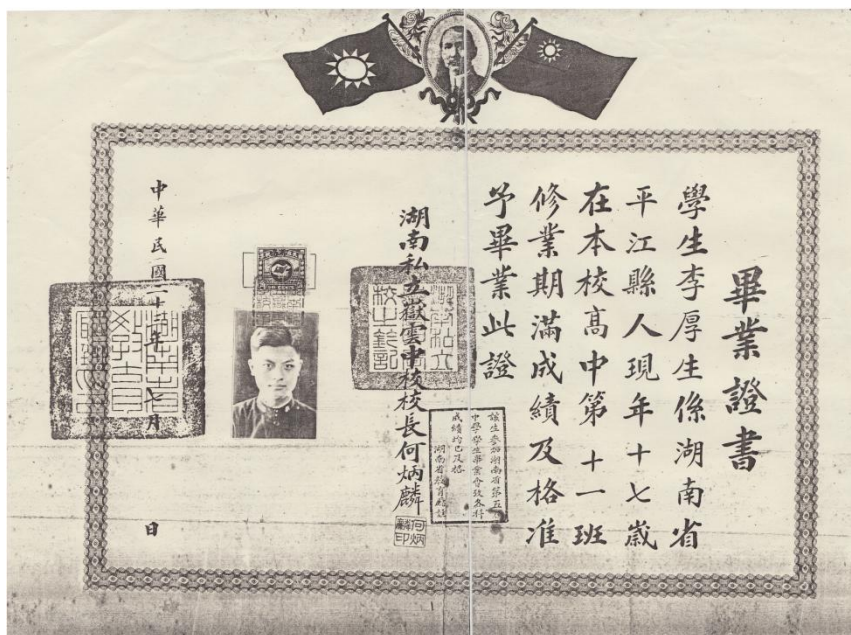 畢業證書
學生李厚生係湖南省
平江縣人現年十七歲
在本校高中第十一班
修業期滿成績及格准
予畢業此證
該生參加湖南省第五
中學學生畢業會攷各科
成績均已及格
湖南省教育廳註
湖南私立嶽雲中校校長何炳麟
何炳麟印
中華民國二十年七月 日